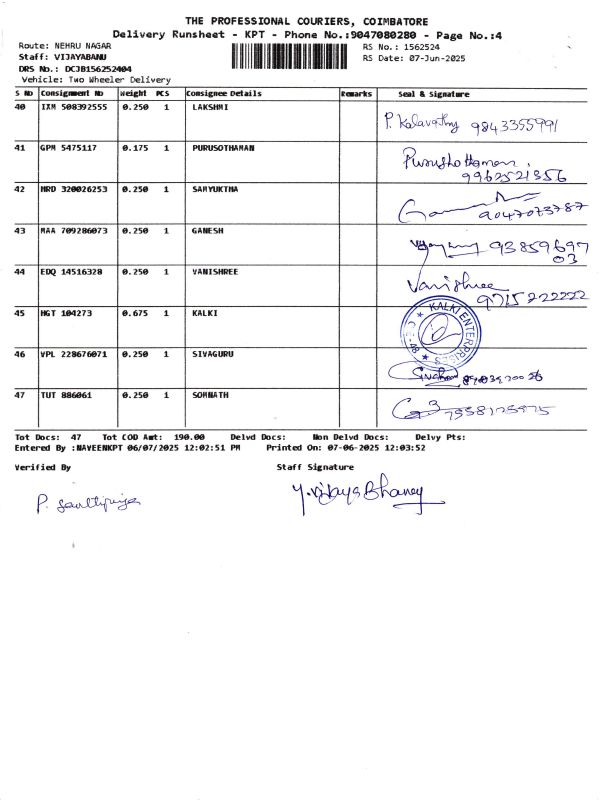 THE PROFESSIONAL COURIERS, COIMBATORE
Delivery Runsheet - KPT - Phone No.:9047080280 - Page No.:4
Route: NEHRU NAGAR RS No.: 1562524
Staff: VIJAYABANU RS Date: 07-Jun-2025
DRS No.: DCJB156252404
Vehicle: Two Wheeler Delivery
S NO Consignment No Weight PCS Consignee Details Remarks Seal & Signature
40 IXM 508392555 0.250 1 LAKSHMI
P. Kalavathy 9843355991
41 GPM 5475117 0.175 1 PURUSOTHAMAN
Purushothaman.
9962521356
42 MRD 320026253 0.250 1 SAMYUKTHA
9047073787
43 MAA 709286073 0.250 1 GANESH
93859697
03
44 EDQ 14516328 0.250 1 VANISHREE
Vanishree
9715222222
45 HGT 104273 0.675 1 KALKI
KALKI ENTERPRISES
CBE-48
46 VPL 228676071 0.250 1 SIVAGURU
47 TUT 886061 0.250 1 SOMNATH
Tot Docs: 47 Tot COD Amt: 190.00 Delvd Docs: Non Delvd Docs: Delvy Pts:
Entered By :NAVEENKPT 06/07/2025 12:02:51 PM Printed On: 07-06-2025 12:03:52
Verified By Staff Signature
P. Y. Vijaya Bhaney